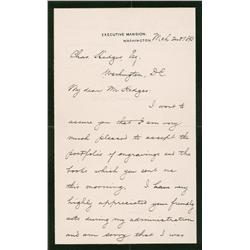 EXECUTIVE MANSION.
WASHINGTON.
Chas. Hedges, Esq.
Washington, D.C.
My dear Mr. Hedges:
I want to
assure you that I am very
much pleased to accept the
portfolio of engravings and the
book which you sent me
this morning. I have very
highly appreciated your friendly
acts during my administration
and am sorry that I was